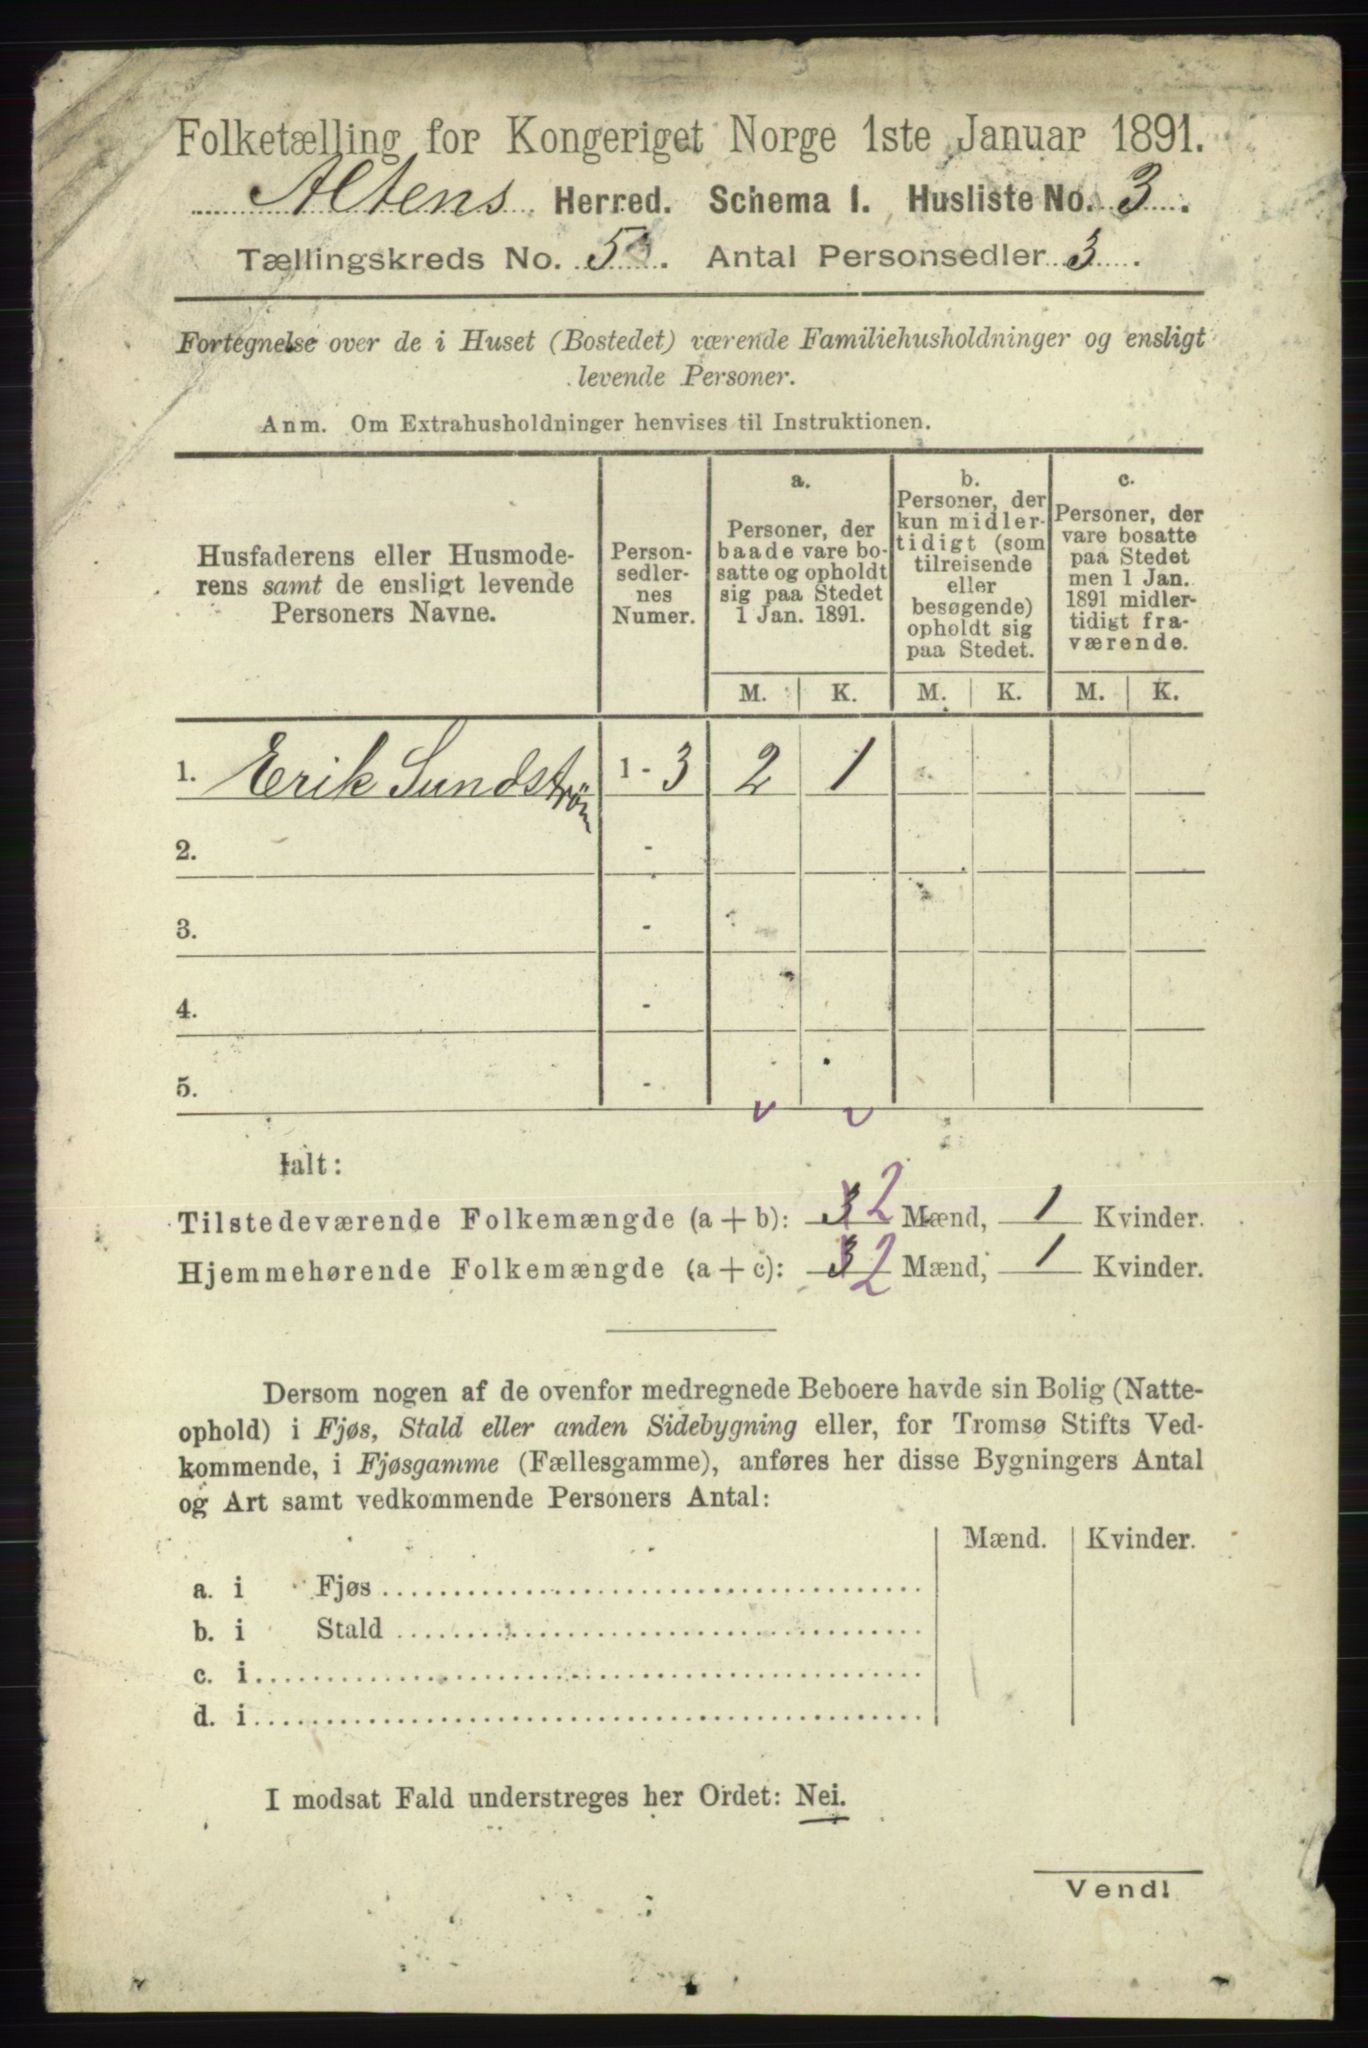 Folketælling for Kongeriget Norge 1ste Januar 1891.
Altens Herred. Schema I. Husliste No. 3.
Tællingskreds No. 5. Antal Personsedler 3.
Fortegnelse over de i Huset (Bostedet) værende Familiehusholdninger og ensligt
levende Personer.
Anm. Om Extrahusholdninger henvises til Instruktionen.
Husfaderens eller Husmode-
rens samt de ensligt levende
Personers Navne.
Person-
sedler-
nes
Numer.
a.
Personer, der
baade vare bo-
satte og opholdt
sig paa Stedet
1 Jan. 1891.
b.
Personer, der
kun midler-
tidigt (som
tilreisende
eller
besøgende)
opholdt sig
paa Stedet.
c.
Personer, der
vare bosatte
paa Stedet
men 1 Jan.
1891 midler-
tidigt fra-
værende.
M. K. M. K. M. K.
1. Erik Sundström 1 - 3 2 1
2. -
3. -
4. -
5. -
Ialt:
Tilstedeværende Folkemængde (a + b): 3 2 Mænd, 1 Kvinder.
Hjemmehørende Folkemængde (a + c): 3 2 Mænd, 1 Kvinder.
Dersom nogen af de ovenfor medregnede Beboere havde sin Bolig (Natte-
ophold) i Fjøs, Stald eller anden Sidebygning eller, for Tromsø Stifts Ved-
kommende, i Fjøsgamme (Fællesgamme), anføres her disse Bygningers Antal
og Art samt vedkommende Personers Antal:
Mænd. Kvinder.
a. i Fjøs
b. i Stald
c. i
d. i
I modsat Fald understreges her Ordet: Nei.
Vend!